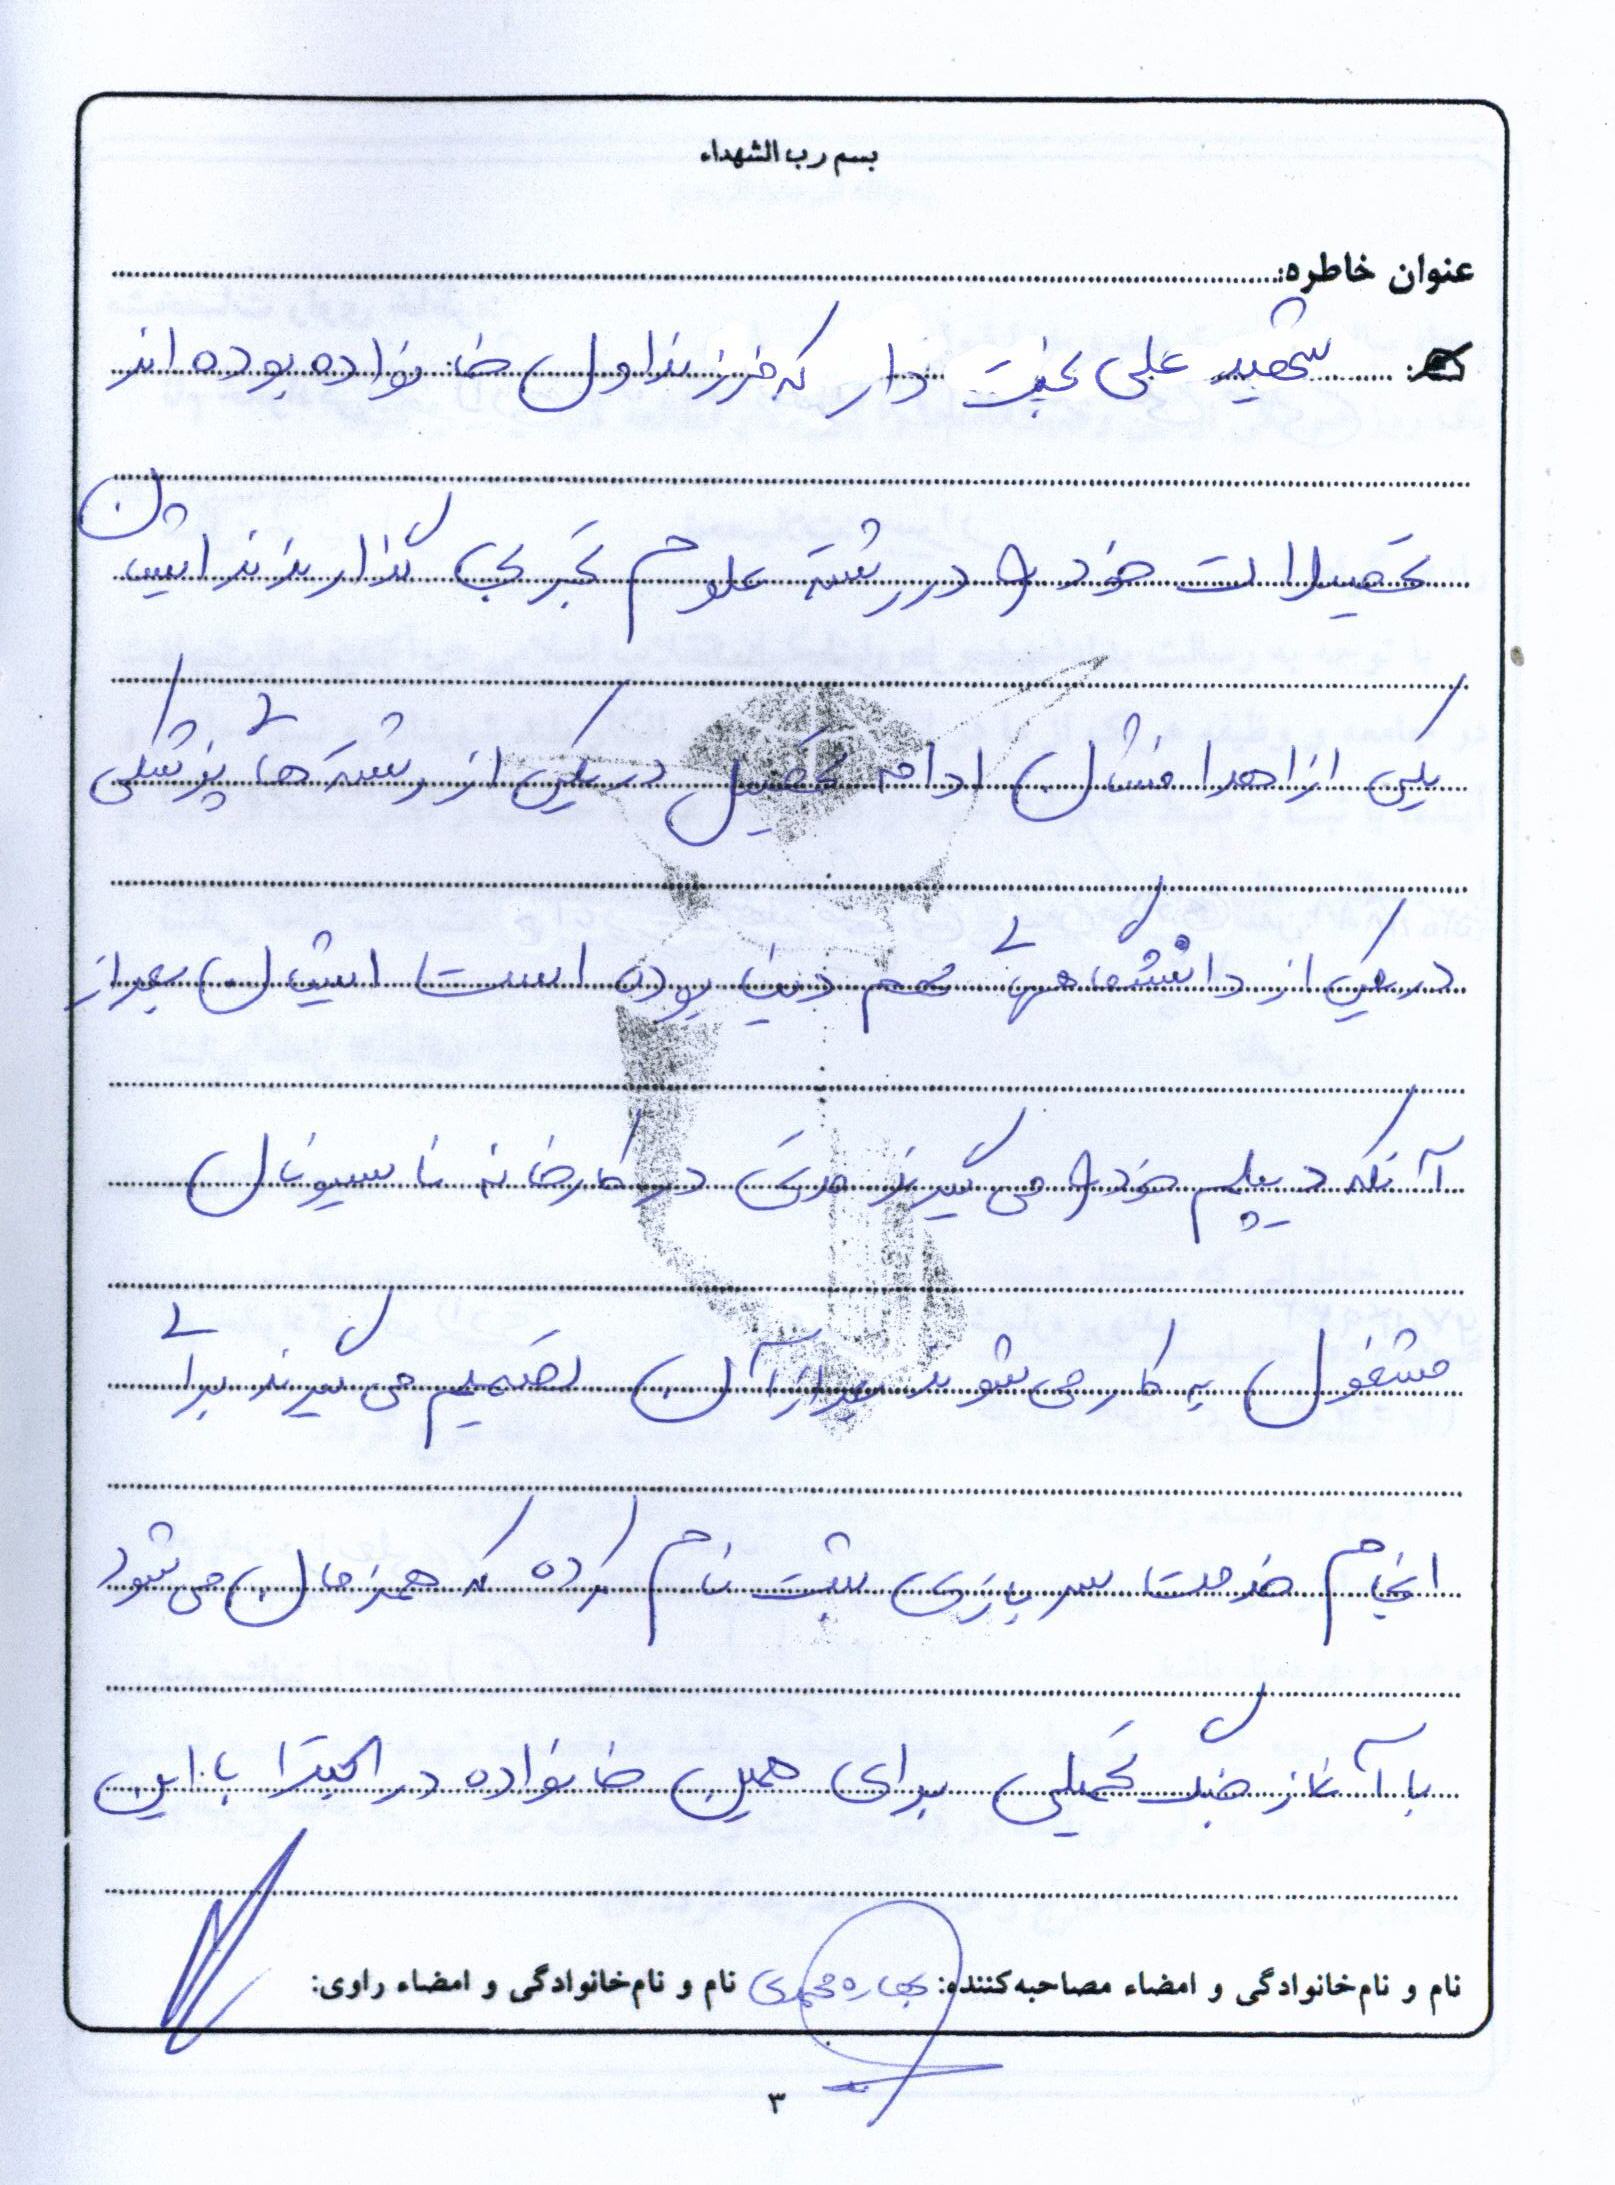 بسم رب الشهداء
عنوان خاطره:
شهید علی بخت دار که فرزند اول خانواده بوده اند
تحصیلات خود را در رشته علوم تجربی گذارندند ایشان
یکی از اهدافشان ادامه تحصیل در یکی از رشته های پزشکی
در یکی از دانشگاههای مهم دنیا بوده است ایشان بعد از
آنکه دیپلم خود را می گیرند مدتی در کارخانه ناسیونال
مشغول به کار می شوند بعد از آن تصمیم می گیرند برای
انجام خدمت سربازی ثبت نام کرده که همزمان می شود
با آغاز جنگ تحمیلی برای همین خانواده در ابتدا با این
نام و نام‌خانوادگی و امضاء مصاحبه‌کننده: بهاره محمدی نام و نام‌خانوادگی و امضاء راوی:
۳